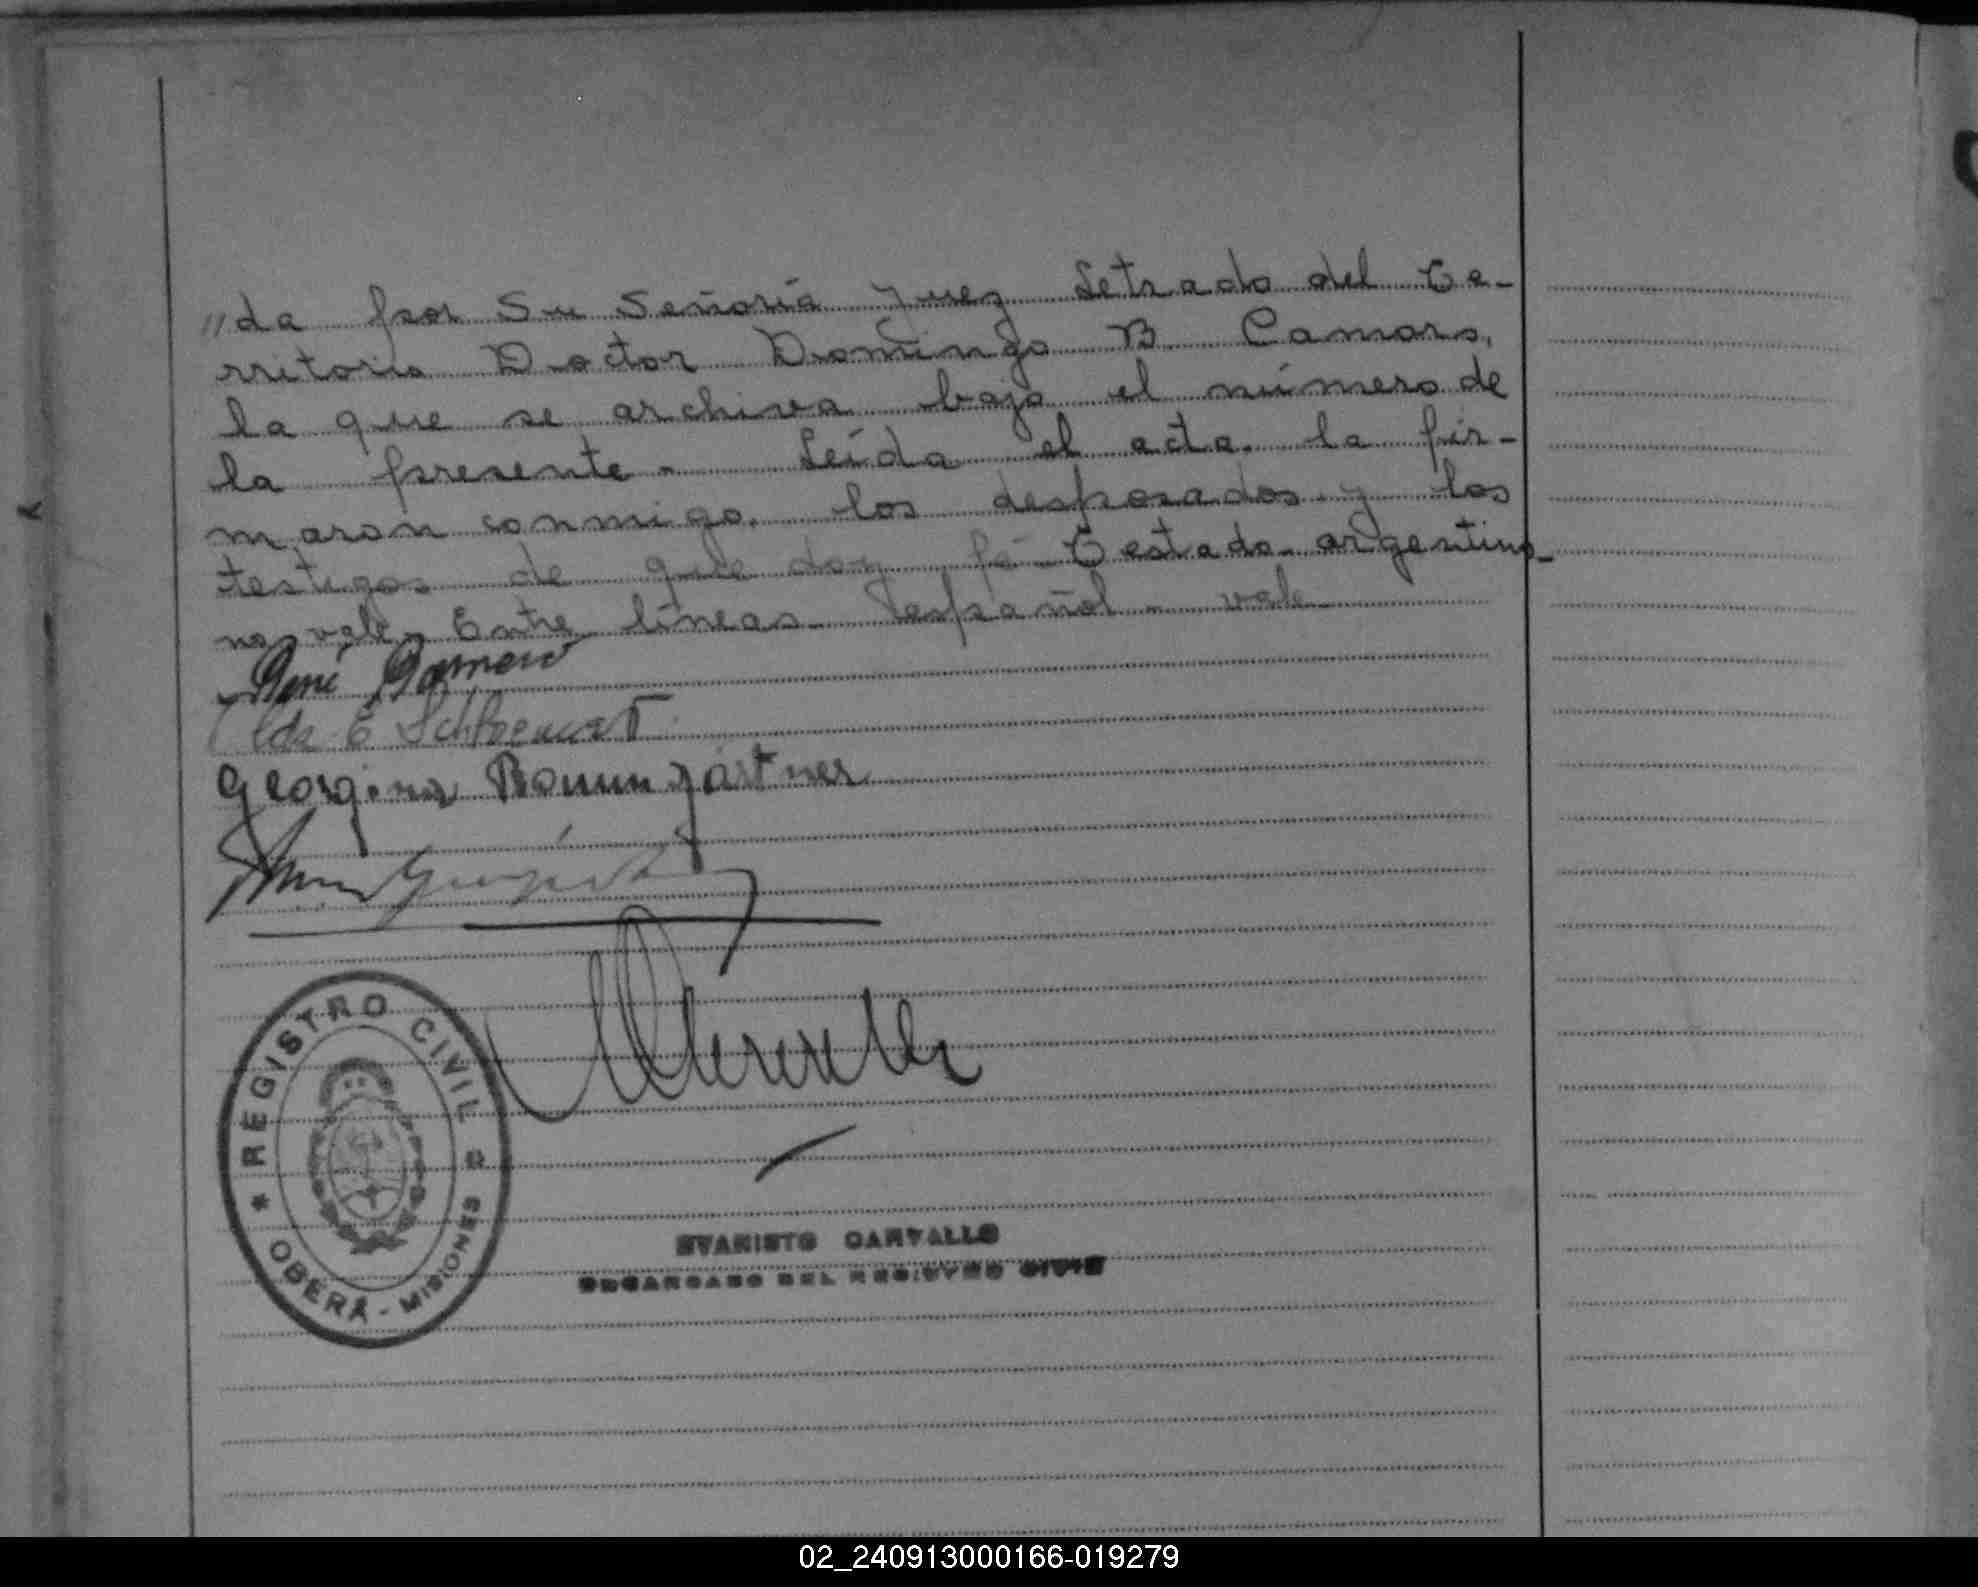 "da por Su Señoria Juez Letrado del Te-
rritorio Doctor Domingo B Camors,
la que se archiva bajo el número de
la presente - Leída el acta, la fir-
maron conmigo, los desposados y los
testigos de que doy fé - Testado - argentino -
no vale. Entre líneas - español - vale -
René
E
Georgina Baumgartner
REGISTRO CIVIL
OBERÁ - MISIONES
EVARISTO CARVALLO
ENCARGADO DEL REGISTRO CIVIL
02_240913000166-019279